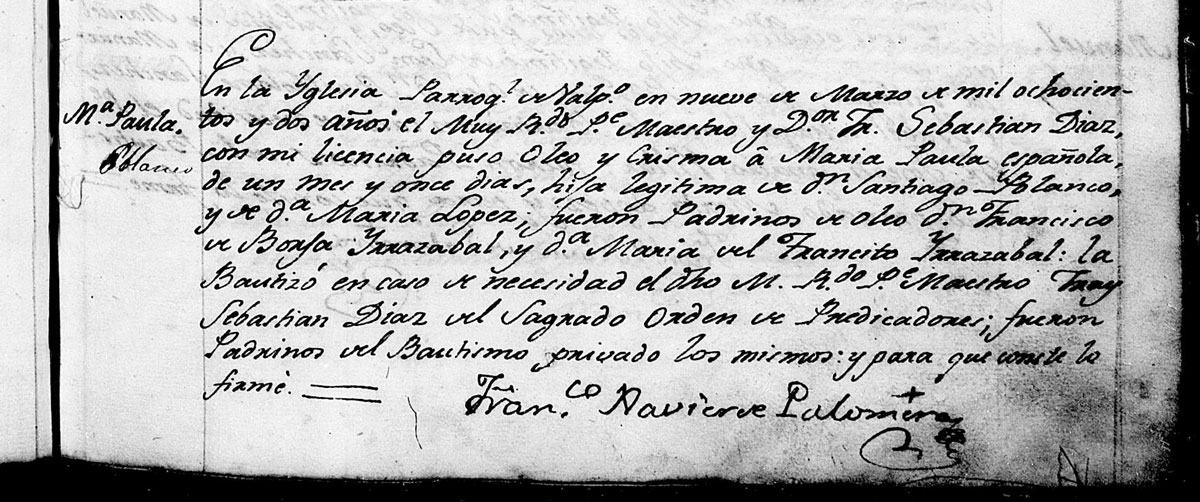 Mª. Paula.
Blanco
En la Yglesia Parroq.l de Valp.o en nueve de Marzo de mil ochocien-
tos y dos años el Muy R.do P.e Maestro y D.on Fr. Sebastian Diaz,
con mi licencia puso Oleo y Crisma â Maria Paula española,
de un mes y once dias, hija legitima de d.n Santiago Blanco,
y de d.a Maria Lopez, fueron Padrinos de oleo d.n Francisco
de Borja Yrrazabal, y d.a Maria del Trancito Yrrazabal: la
Bautizó en caso de necesidad el dho M. R.do P.e Maestro Fray
Sebastian Diaz del Sagrado Orden de Predicadores; fueron
Padrinos del Bautismo privado los mismos: y para que conste lo
firmé.
Fran.co Xavier de Palomera